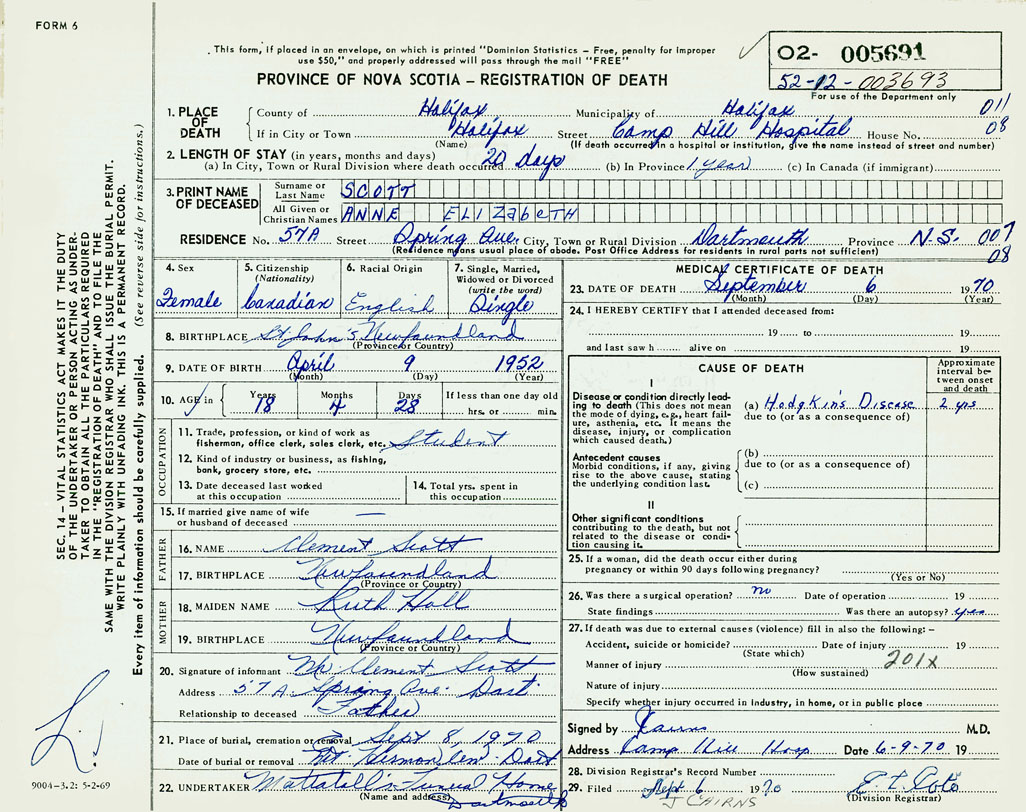 FORM 6
This form, if placed in an envelope, on which is printed "Dominion Statistics – Free, penalty for improper
use $50," and properly addressed will pass through the mail "FREE"
PROVINCE OF NOVA SCOTIA – REGISTRATION OF DEATH
02- 005691
52-12-003693
For use of the Department only
SEC. 14 – VITAL STATISTICS ACT MAKES IT THE DUTY
OF THE UNDERTAKER OR PERSON ACTING AS UNDER-
TAKER TO OBTAIN ALL THE PARTICULARS REQUIRED
IN THE "REGISTRATION OF DEATH" AND TO FILE THE
SAME WITH THE DIVISION REGISTRAR WHO SHALL ISSUE THE BURIAL PERMIT.
WRITE PLAINLY WITH UNFADING INK. THIS IS A PERMANENT RECORD.
Every item of information should be carefully supplied. (See reverse side for instructions.)
9004-3.2: 5-2-69
1. PLACE OF DEATH
County of Halifax Municipality of Halifax 011
If in City or Town Halifax Street Camp Hill Hospital House No. 08
(Name) (If death occurred in a hospital or institution, give the name instead of street and number)
2. LENGTH OF STAY (in years, months and days)
(a) In City, Town or Rural Division where death occurred 20 days (b) In Province 1 year (c) In Canada (if immigrant)
3. PRINT NAME OF DECEASED
Surname or Last Name SCOTT
All Given or Christian Names ANNE ELIZabeTH
RESIDENCE No. 57A Street Spring Ave. City, Town or Rural Division Dartmouth Province N-S- 007
(Residence means usual place of abode. Post Office Address for residents in rural ports not sufficient) 08
4. Sex
Female
5. Citizenship
(Nationality)
Canadian
6. Racial Origin
English
7. Single, Married,
Widowed or Divorced
(write the word)
Single
8. BIRTHPLACE St. John's Newfoundland
(Province or Country)
9. DATE OF BIRTH April 9 1952
(Month) (Day) (Year)
10. AGE in Years 18 Months 4 Days 28 If less than one day old
hrs. or min.
OCCUPATION
11. Trade, profession, or kind of work as
fishermen, office clerk, sales clerk, etc. Student
12. Kind of industry or business, as fishing,
bank, grocery store, etc.
13. Date deceased last worked
at this occupation
14. Total yrs. spent in
this occupation
15. If married give name of wife
or husband of deceased —
FATHER
16. NAME Clement Scott
17. BIRTHPLACE Newfoundland
(Province or Country)
MOTHER
18. MAIDEN NAME Ruth Hall
19. BIRTHPLACE Newfoundland
(Province or Country)
20. Signature of informant Mr. Clement Scott
Address 57A Spring Ave. Dart
Relationship to deceased Father
21. Place of burial, cremation or removal Sept 8, 1970
Date of burial or removal Mt Hermon Cem. Dart
22. UNDERTAKER Mattatall's Funeral Home
(Name and address) Dartmouth
MEDICAL CERTIFICATE OF DEATH
23. DATE OF DEATH September 6 1970
(Month) (Day) (Year)
24. I HEREBY CERTIFY that I attended deceased from:
19 to 19
and last saw h alive on 19
CAUSE OF DEATH
Approximate
interval be-
tween onset
and death
I
Disease or condition directly lead-
ing to death (This does not mean
the mode of dying, e.g., heart fail-
ure, asthenia, etc. It means the
disease, injury, or complication
which caused death.)
(a) Hodgkin's Disease 2 yrs
due to (or as a consequence of)
Antecedent causes
Morbid conditions, if any, giving
rise to the above cause, stating
the underlying condition last.
(b)
due to (or as a consequence of)
(c)
II
Other significant conditions
contributing to the death, but not
related to the disease or condi-
tion causing it.
25. If a woman, did the death occur either during
pregnancy or within 90 days following pregnancy?
(Yes or No)
26. Was there a surgical operation? no Date of operation 19
State findings Was there an autopsy? yes
27. If death was due to external causes (violence) fill in also the following: –
Accident, suicide or homicide? Date of injury 19
(State which) 201x
Manner of injury
(How sustained)
Nature of injury
Specify whether injury occurred in industry, in home, or in public place
Signed by Cairns M.D.
Address Camp Hill Hosp Date 6-9-70 19
28. Division Registrar's Record Number
29. Filed Sept 6 1970
(Division Registrar)
J CAIRNS